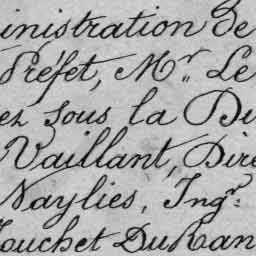 inistration de
Préfet, Mr. Le
ez sous la Di
Vaillant, Dire
Naylies, Ingr.
Touchet Duran